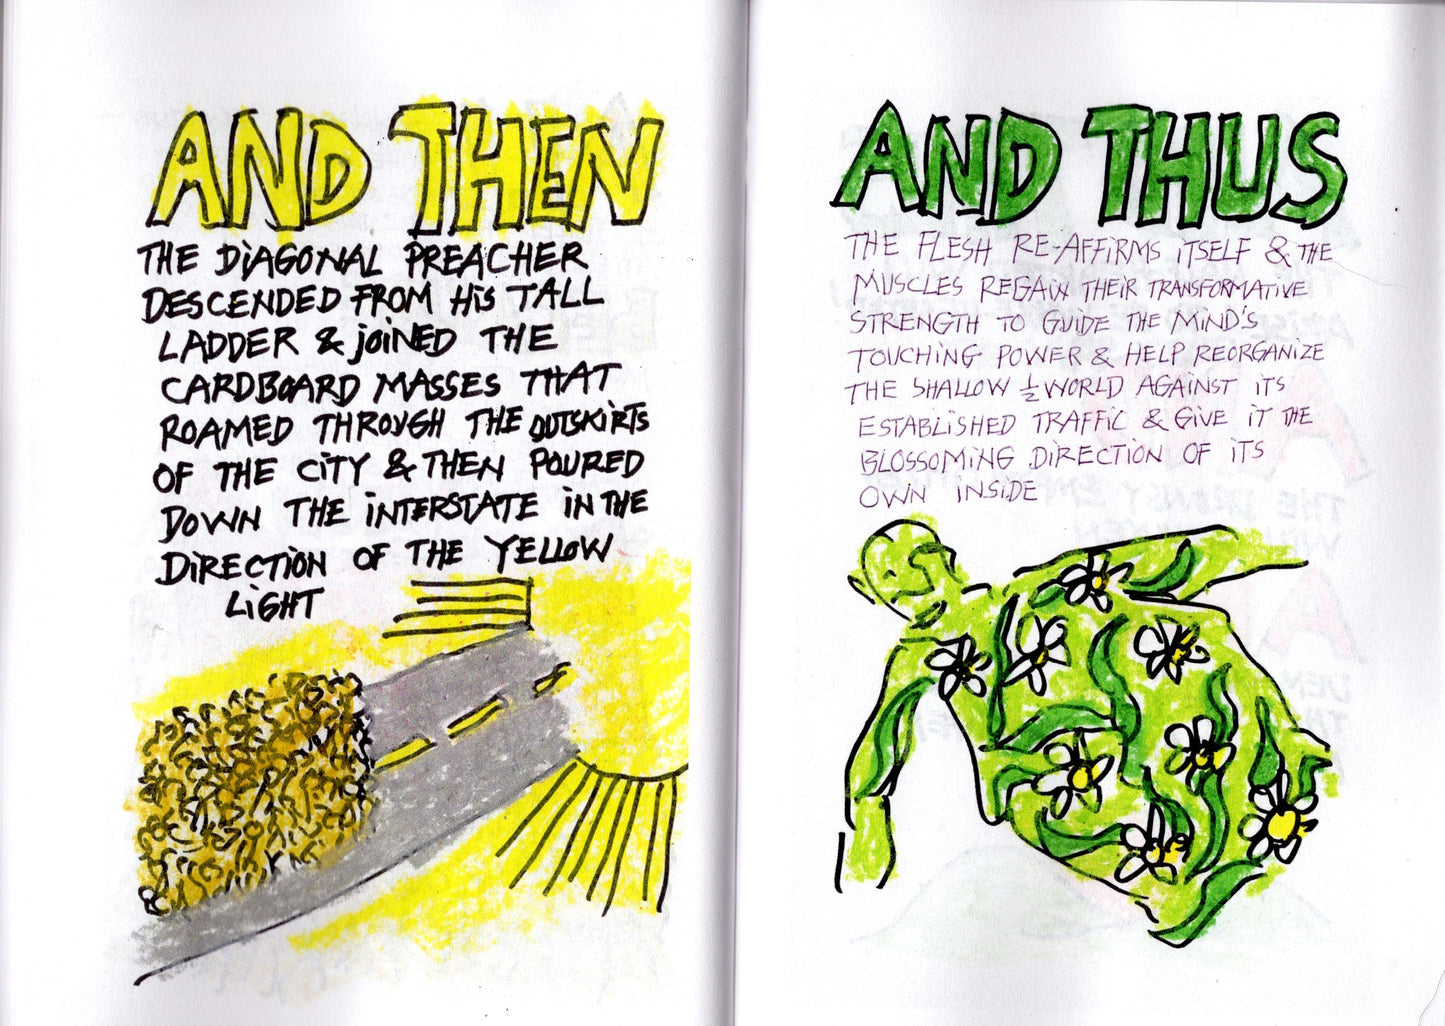 AND THEN
THE DiAGONAL PREACHER
DESCENDED FROM HiS TALL
LADDER & JOiNED THE
CARDBOARD MASSES THAT
ROAMED THROUGH THE OUTSKiRTS
OF THE CiTY & THEN POURED
DOWN THE iNTERSTATE iN THE
DiRECTiON OF THE YELLOW
LiGHT
AND THUS
THE FLESH RE-AFFiRMS iTSELF & THE
MUSCLES REGAiN THEiR TRANSFORMATiVE
STRENGTH TO GUiDE THE MiND'S
TOUCHiNG POWER & HELP REORGANiZE
THE SHALLOW ½ WORLD AGAiNST iTS
ESTABLiSHED TRAFFiC & GiVE iT THE
BLOSSOMiNG DiRECTiON OF iTS
OWN iNSiDE